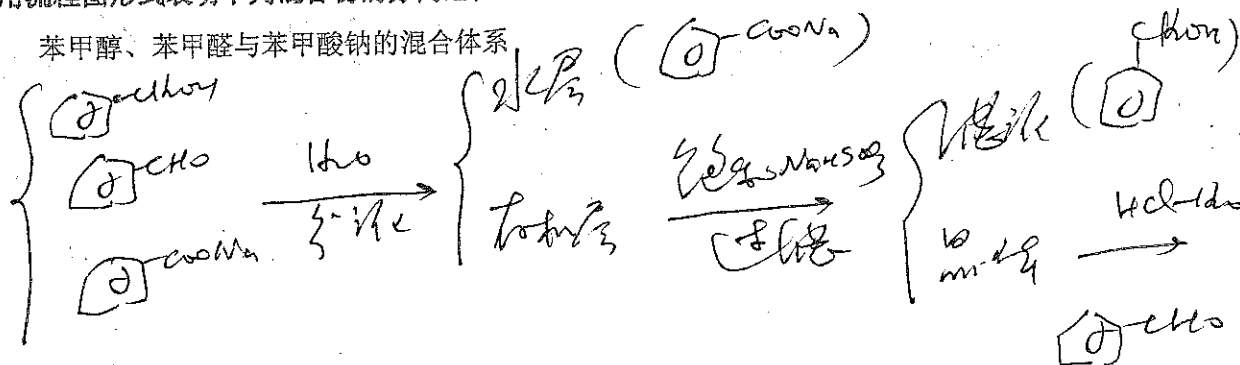 苯甲醇、苯甲醛与苯甲酸钠的混合体系
水层 ( COONa )
CH2OH
CHO
COONa
H2O
分液
有机层
饱和NaHSO3
过滤
滤液 ( CH2OH )
晶体
HCl-H2O
CHO